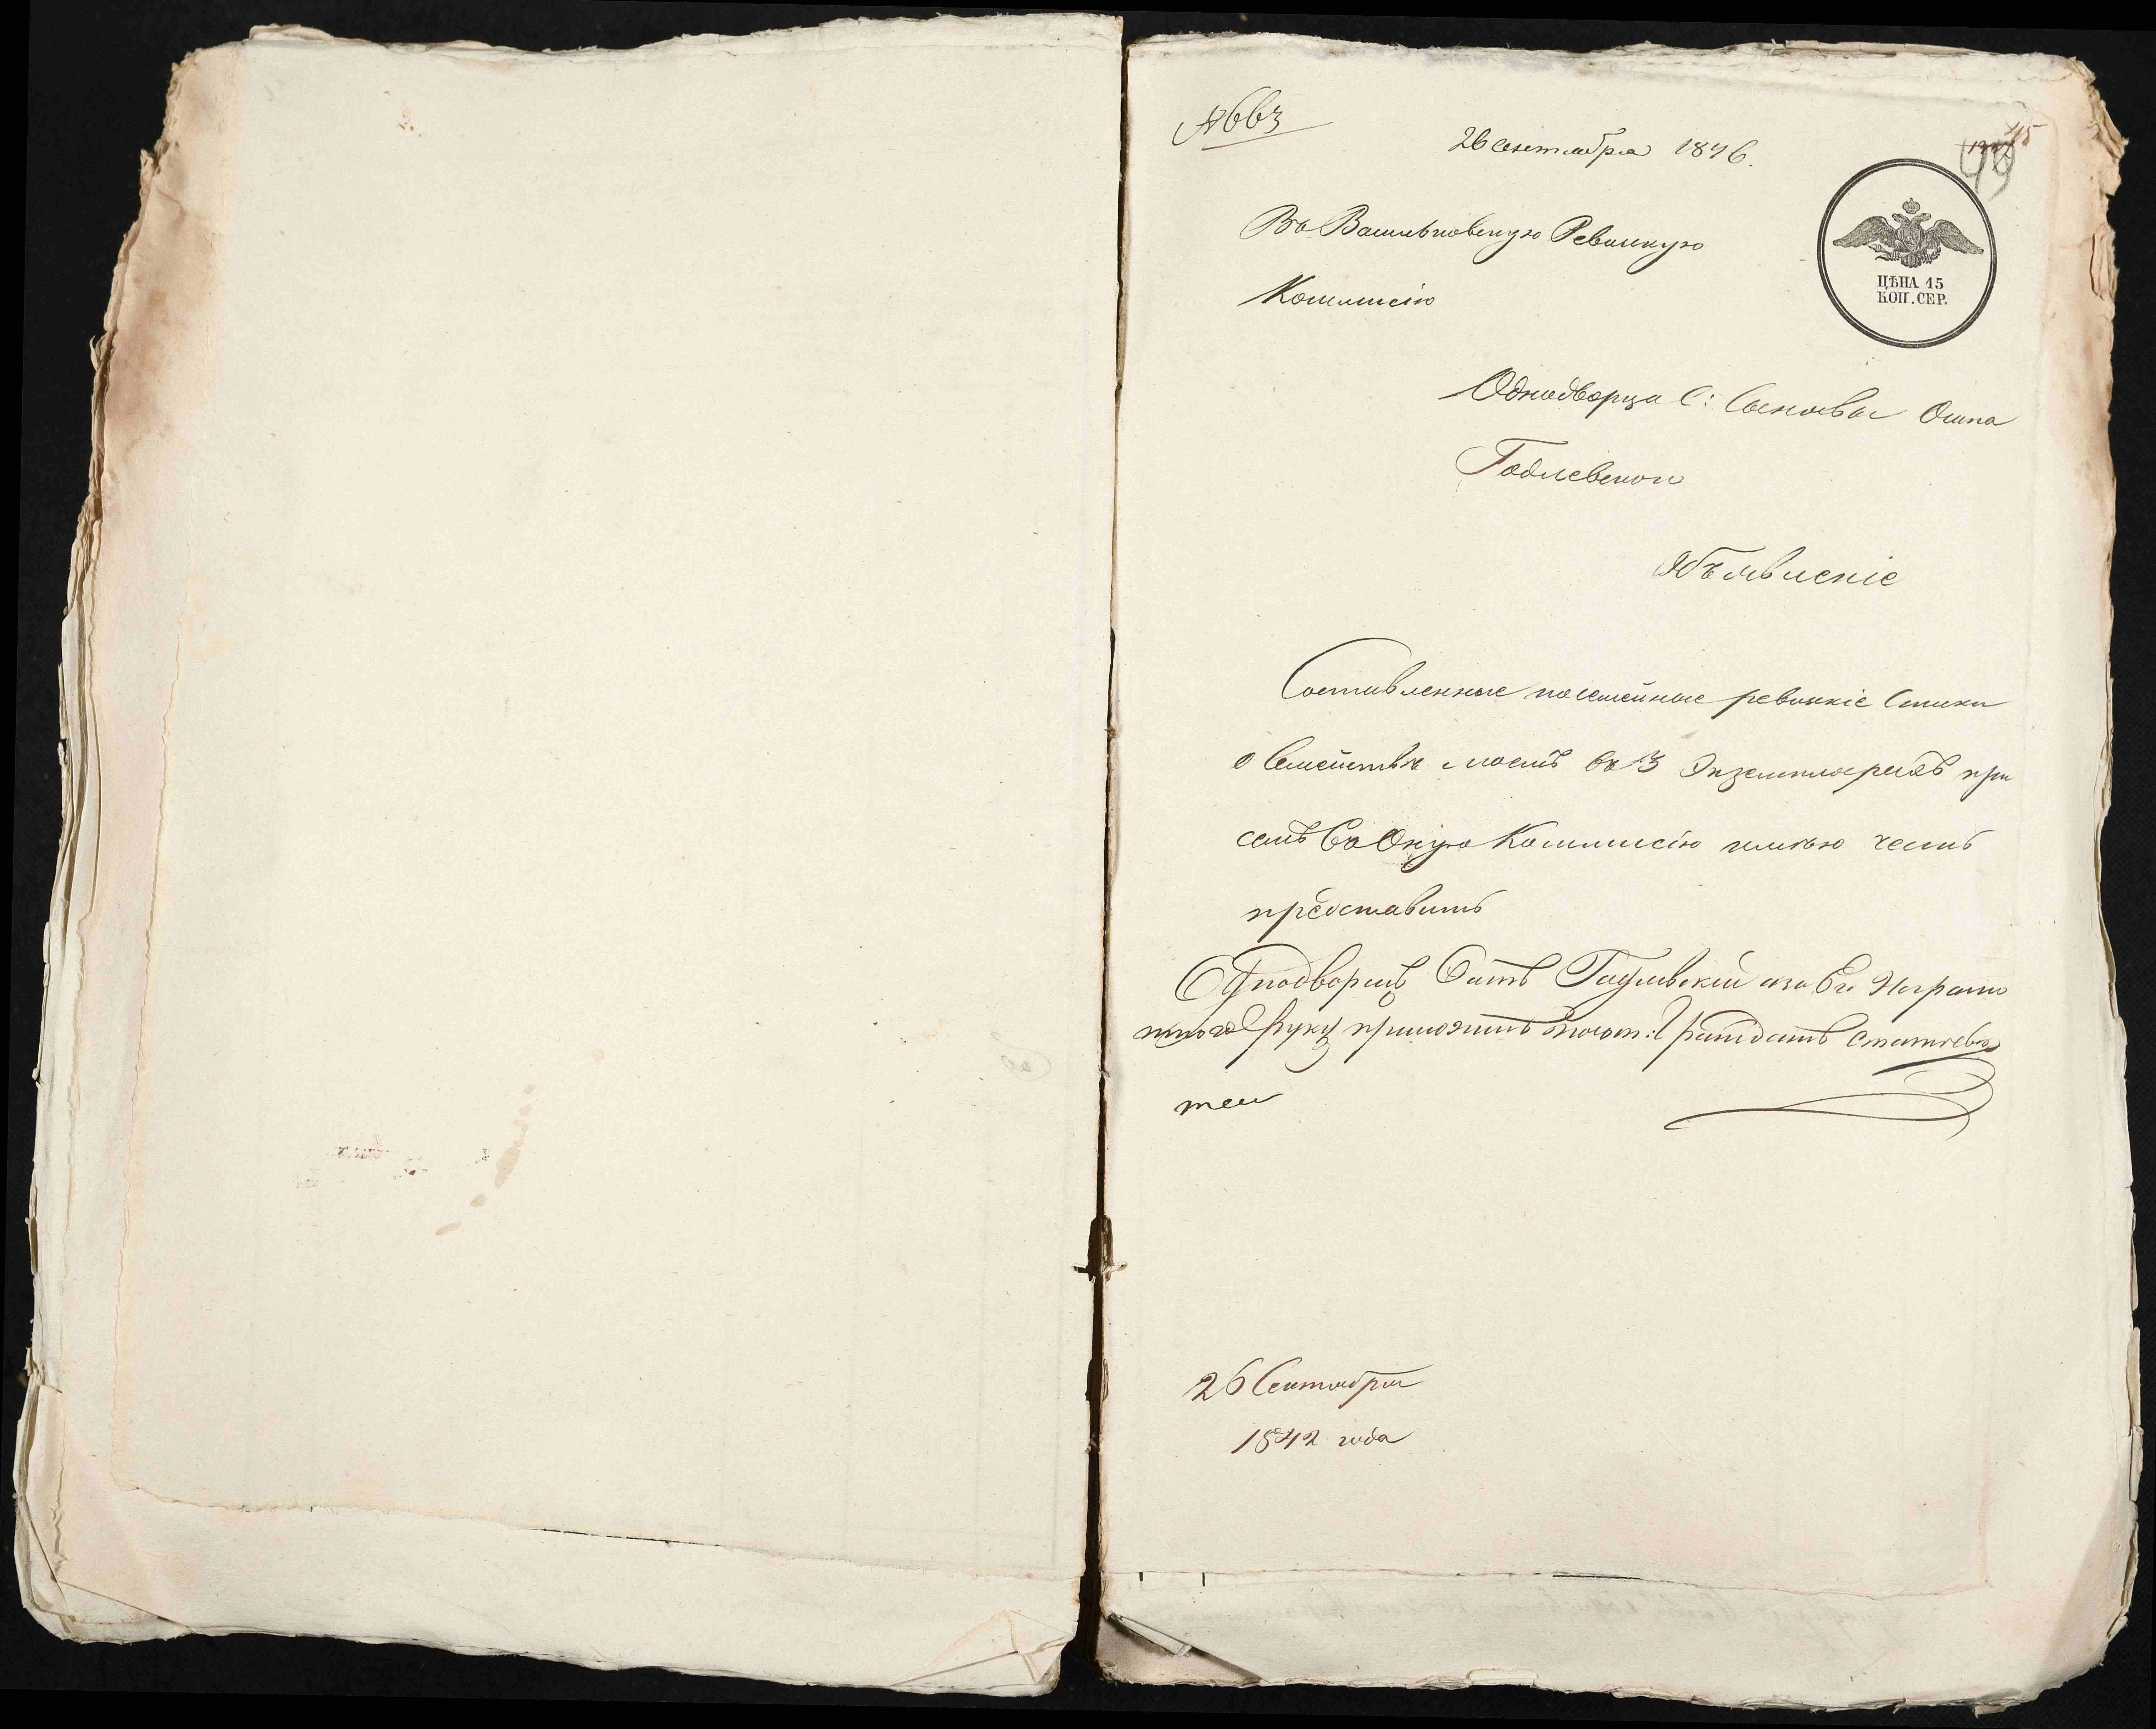 № 663
26 Сентября 1846.
45
99
ЦѢНА 15
КОП. СЕР.
Въ Васильковскую Ревизкую
Коммисію
Однодворца С: Осипа
Годлевского
Объявленіе
Составленные посемейные ревизкіе Списки
о Семействѣ моемъ въ 3 Экземплярахъ при
семъ Въ Оную Коммисію имѣю честь
представить
Однодворецъ Осипъ Годлевскій а за Его Неграмо
тного Руку приложилъ
26 Сентября
1842 года